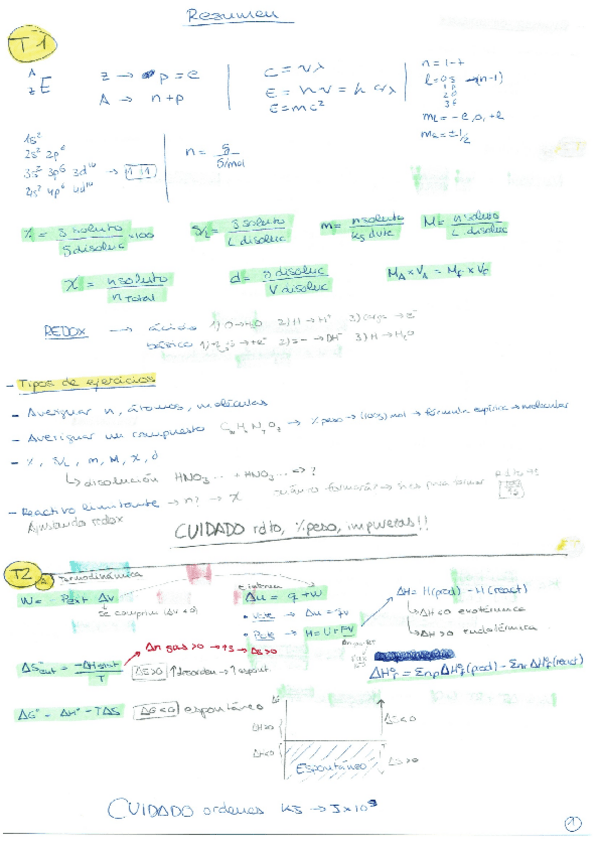 Resumen
T1
A
Z E
Z → p = e
A → n+p
c = νλ
E = hν = h c/λ
E = mc²
n = 1-7
mₗ = -l, 0, +l
mₛ = ±1/2
1s²
2s² 2p⁶
3s² 3p⁶ 3d¹⁰ →
4s² 4p⁶ 4d¹⁰
n = g / g/mol
% = g soluto / g disoluc × 100
g/L = g soluto / L disoluc
m = n soluto / kg dvte
M = n soluto / L disoluc
χ = n soluto / n TOTAL
d = g disoluc / V disoluc
M_A × V_A = M_f × V_f
REDOX → ácido 1) O → H₂O 2) H → H⁺ 3) carga → e⁻
básico 3) H → H₂O
- Tipos de ejercicios
- Averiguar n, átomos, moléculas
- Averiguar un compuesto → % peso → (100g) mol → fórmula empírica → molecular
- %, g/L, m, M, χ, d
↳ disolución HNO₃ ... + HNO₃ ... ?
- Reactivo limitante → n? → X
Ajustando redox
CUIDADO rdto, % peso, impurezas!!
T2
Termodinámica
W = - Pext ΔV
se comprim (ΔV < 0)
E interna
Δu = q + w
• V cte → Δu = qv
• P cte → H = U + PV
ΔH = H(prod) - H(react)
↳ ΔH<0 exotérmica
↳ ΔH>0 endotérmica
Δn gas > 0 → ↑S → ΔS > 0
ΔS°ent = -ΔH sist / T
ΔS>0 ↑ desorden → ↑ espont
ΔH°r = Σnp ΔH°f (prod) - Σnr ΔH°f (react)
ΔG° = ΔH° - TΔS
ΔG<0 espontáneo
ΔH>0
ΔH<0
ΔS<0
ΔS>0
Espontáneo
CUIDADO ordenes KJ → J × 10³
1